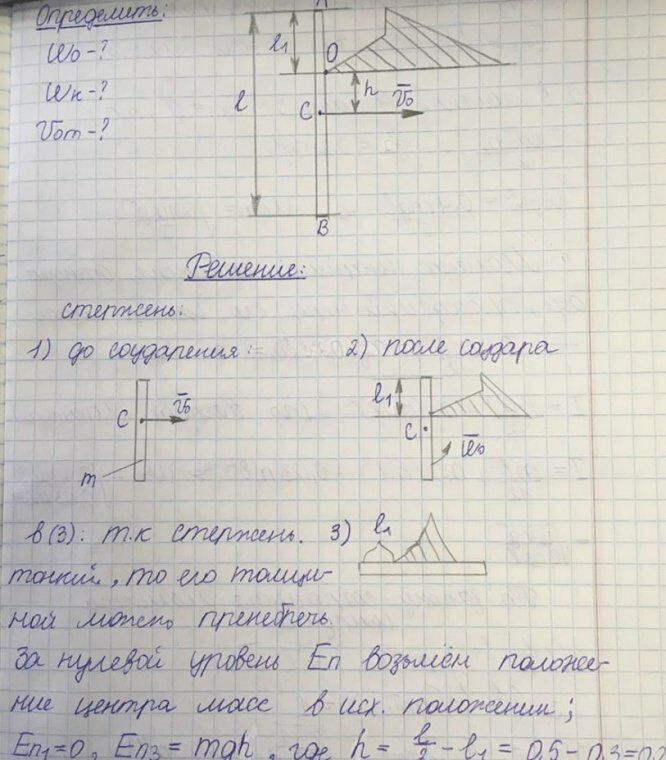 Определить:
ω₀-?
ωк-?
v̅от-?
A
l₁
O
l
h
C
v̅₀
B
Решение:
стержень:
1) до соударения: 2) после соудара
C v̅₀
m
l₁
C
ω̅₀
в(3): т.к стержень. 3) l₁
тонкий, то его толщи-
ной можно пренебречь.
За нулевой уровень Eп возьмём положе-
ние центра масс в исх. положении;
Eп₁=0, Eп₃ = mgh, где h = l/2 - l₁ = 0,5 - 0,3=0,2